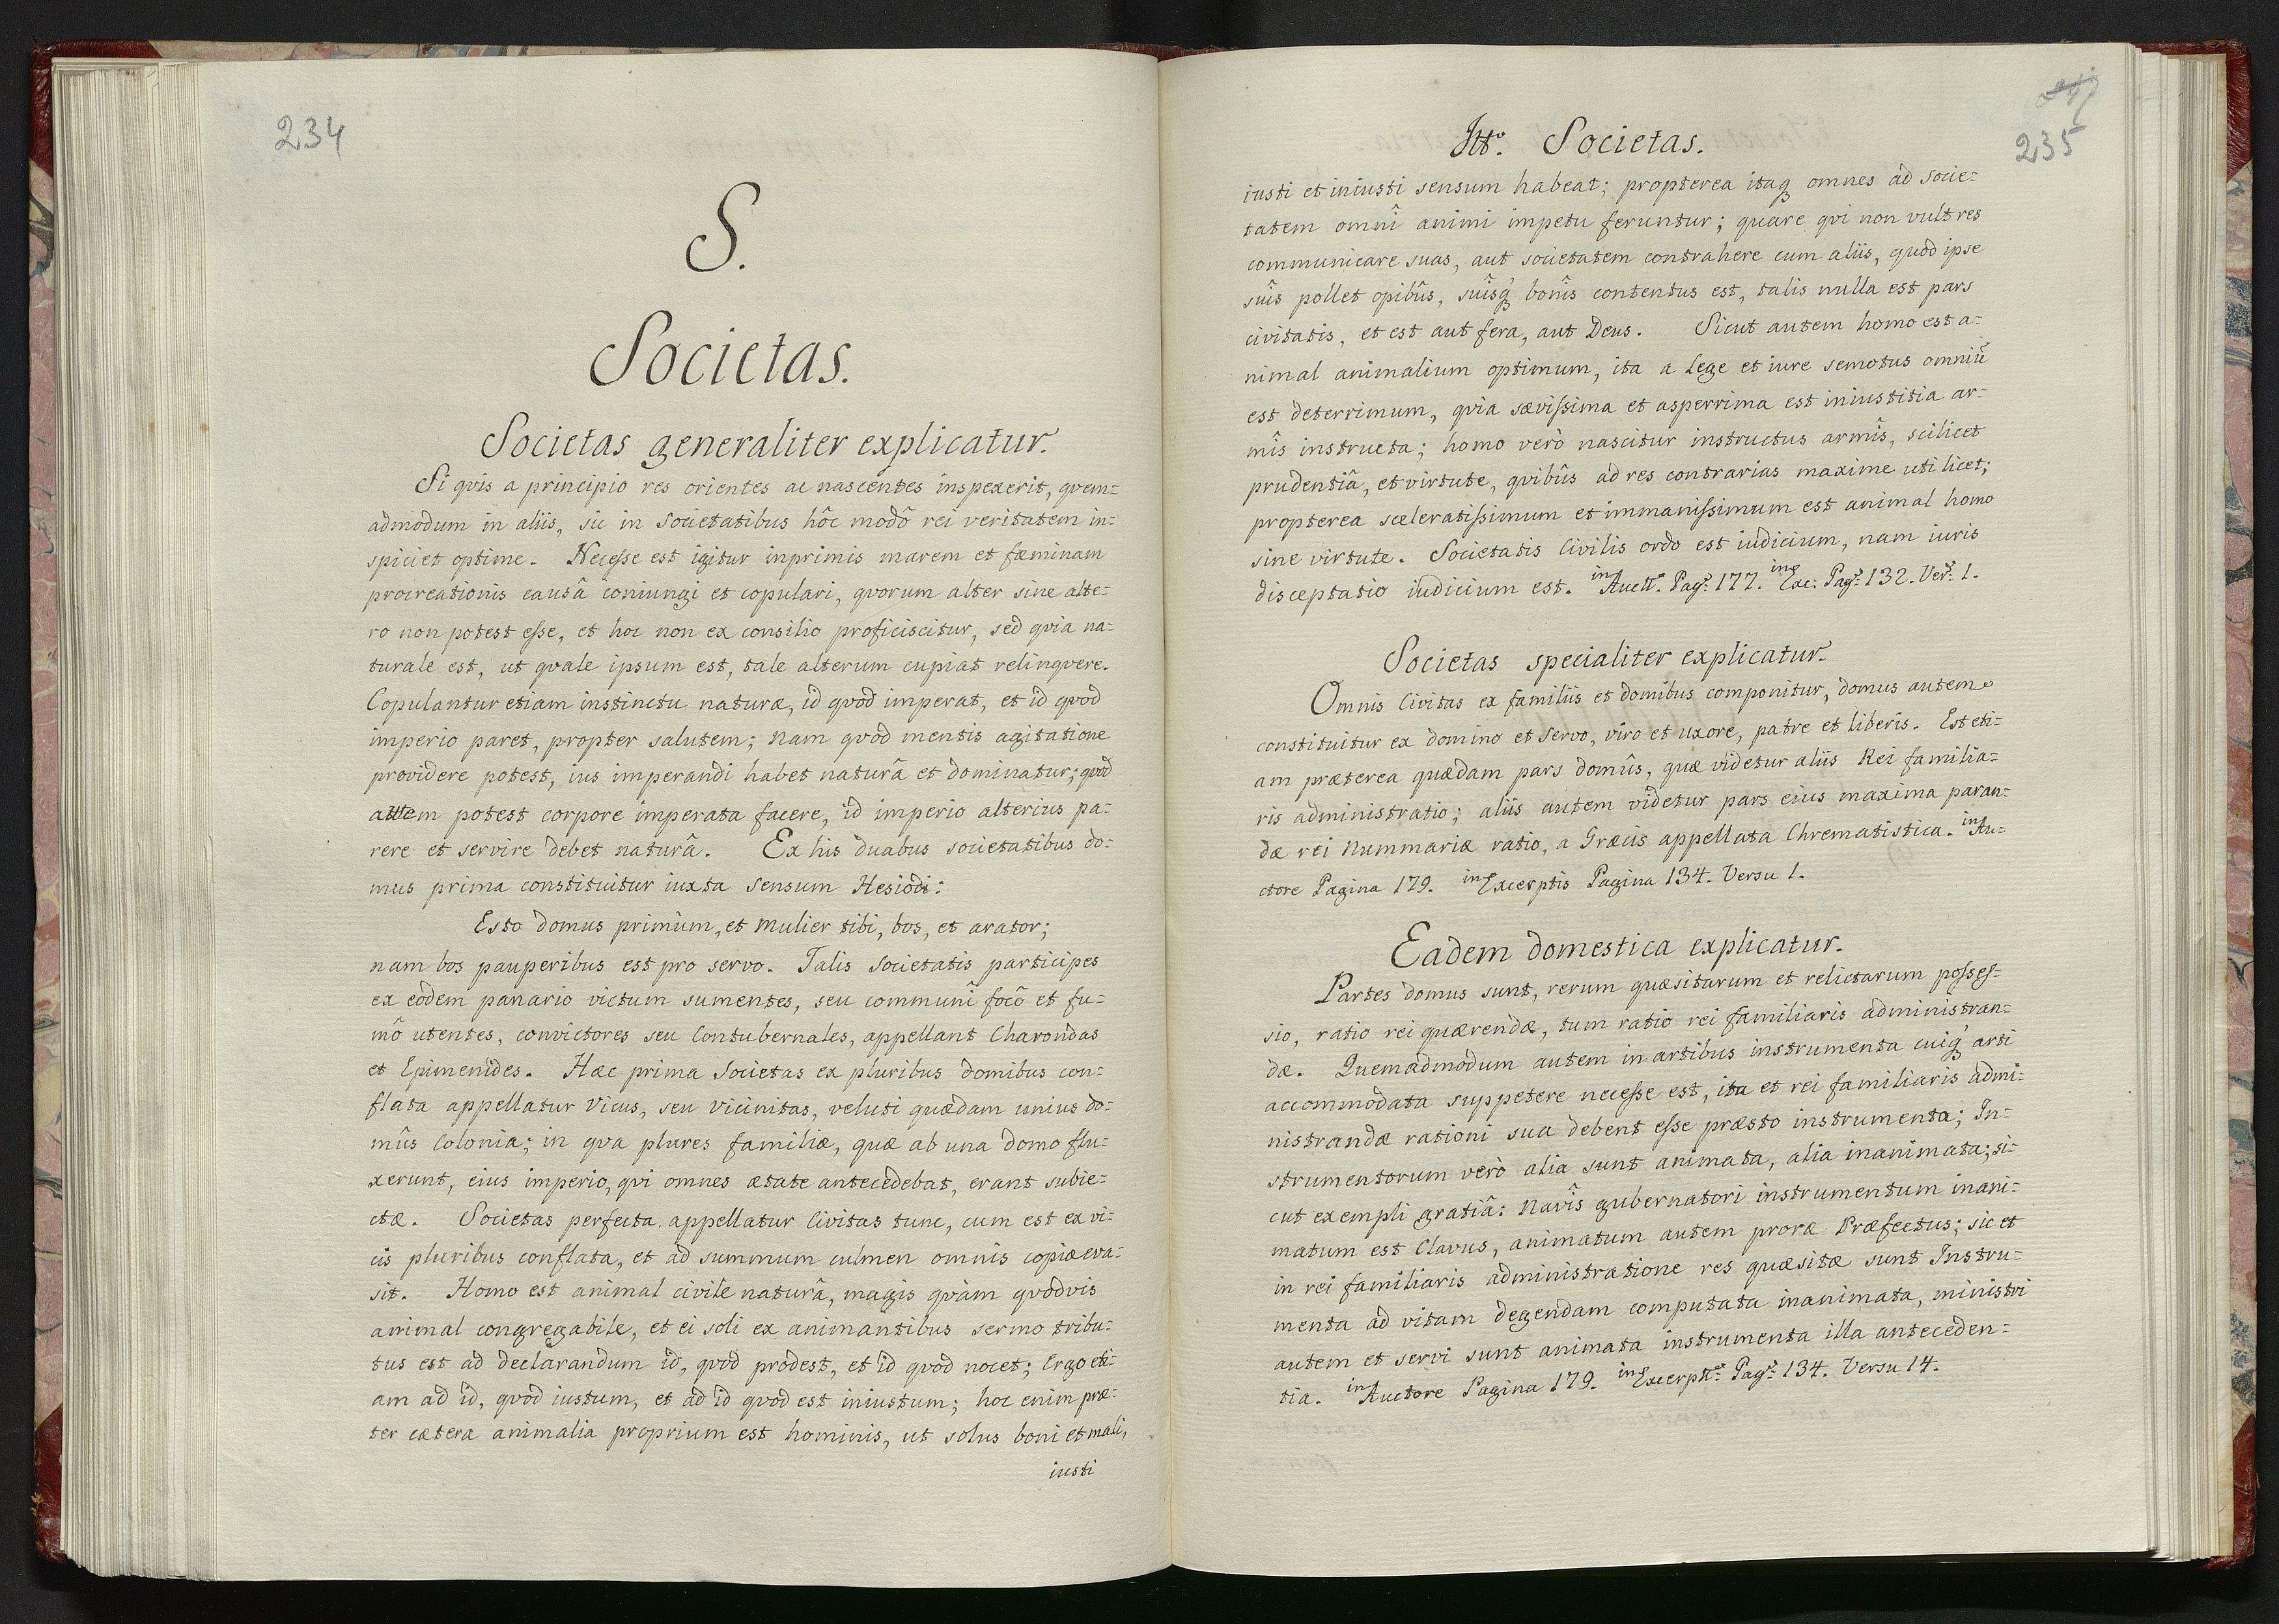 234
S.
Societas.
Societas generaliter explicatur.
Si qvis a principio res orientes ac nascentes inspexerit, qvem=
admodum in aliis, sic in Societatibus hôc modô rei veritatem in=
spiciet optime. Necesse est igitur inprimis marem et fæminam
procreationis causâ coniungi et copulari, qvorum alter sine alte=
ro non potest esse, et hoc non ex consilio proficiscitur, sed qvia na=
turale est, ut qvale ipsum est, tale alterum cupiat relinqvere.
Copulantur etiam instinctu naturæ, id qvod imperat, et id qvod
imperio paret, propter salutem; nam qvod mentis agitatione
providere potest, ius imperandi habet naturâ et dominatur; qvod
autem potest corpore imperata facere, id imperio alterius pa=
rere et servire debet naturâ. Ex his duabus societatibus do=
mus prima constituitur iuxta sensum Hesiodi:
Esto domus primùm, et Mulier tibi, bos, et arator;
nam bos pauperibus est pro servo. Talis Societatis participes
ex eodem panario victum sumentes, seu communî focô et fu=
mô utentes, convictores seu Contubernales, appellant Charondas
et Epimenides. Hæc prima Societas ex pluribus domibus con=
flata appellatur Vicus, seu Vicinitas, veluti quædam unius do=
mûs Colonia; in qva plures familiæ, quæ ab una domo flu=
xerunt, eius imperio, qvi omnes ætate antecedebat, erant subie=
ctæ. Societas perfecta appellatur Civitas tunc, cum est ex vi=
cis pluribus conflata, et ad summum culmen omnis copiæ eva=
sit. Homo est animal civile naturâ, magis qvàm qvodvis
animal congregabile, et ei soli ex animantibus sermo tribu=
tus est ad declarandum id, qvod prodest, et id qvod nocet; Ergo eti=
am ad id, qvod iustum, et ad id qvod est iniustum; hoc enim præ=
ter cætera animalia proprium est hominis, ut solus boni et mali,
iusti
235
Itto. Societas.
iusti et iniusti sensum habeat; propterea itaq omnes ad socie=
tatem omnî animi impetu feruntur; quare qvi non vult res
communicare suas, aut societatem contrahere cum aliis, quod ipse
suîs pollet opibûs, suîsq bonîs contentus est, talis nulla est pars
civitatis, et est aut fera, aut Deus. Sicut autem homo est a=
nimal animalium optimum, ita a Lege et iure semotus omniũ
est deterrimum, qvia sævissima et asperrima est iniustitia ar=
mîs instructa; homo verò nascitur instructus armîs, scilicet
prudentiâ, et virtute, qvibûs ad res contrarias maxime uti licet;
propterea sceleratissimum et immanissimum est animal homo
sine virtute. Societatis Civilis ordo est iudicium, nam iuris
disceptatio iudicium est. in Auctre. Pag: 177. in Exc: Pag: 132. Ver: 1.
Societas specialiter explicatur.
Omnis Civitas ex familiis et domibus componitur, domus autem
constituitur ex domino et servo, viro et uxore, patre et liberis. Est eti=
am præterea quædam pars domûs, quæ videtur aliis Rei familia=
ris administratio; aliis autem videtur pars eius maxima paran=
dæ rei Nummariæ ratio, a Græcis appellata Chrematistica. in Au=
ctore Pagina 179. in Excerptis Pagina 134. Versu 1.
Eadem domestica explicatur.
Partes domus sunt, rerum quæsitarum et relictarum posses=
sio, ratio rei quærendæ, tum ratio rei familiaris administran=
dæ. Quemadmodum autem in artibus instrumenta cuiq arti
accommodata suppetere necesse est, ita et rei familiaris admi=
nistrandæ rationi sua debent esse præsto instrumenta; In=
strumentorum verò alia sunt animata, alia inanimata; si=
cut exempli gratiâ: Navîs gubernatori instrumentum inani=
matum est Clavus, animatum autem proræ Præfectus; sic et
in rei familiaris administratione res quæsitæ sunt Instru=
menta ad vitam degendam computata inanimata, ministri
autem et servi sunt animata instrumenta illa anteceden=
tia. in Auctore Pagina 179. in Excerptis: Pag: 134. Versu 14.